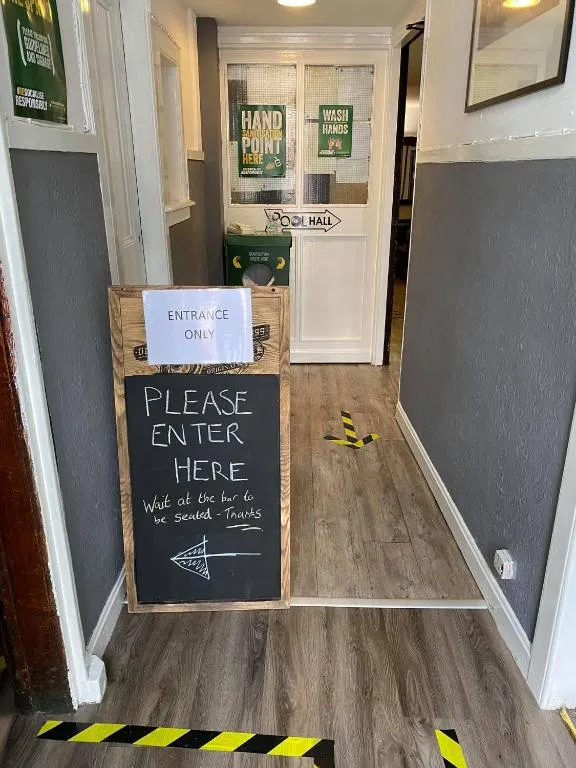 GUIDELINES
AND
#RESOCIALISE
RESPONSIBLY
HAND
SANITISATION
POINT
HERE
WASH
HANDS
POOL HALL
ENTRANCE
ONLY
ORIGINAL
PLEASE
ENTER
HERE
Wait at the bar to
be seated - Thanks